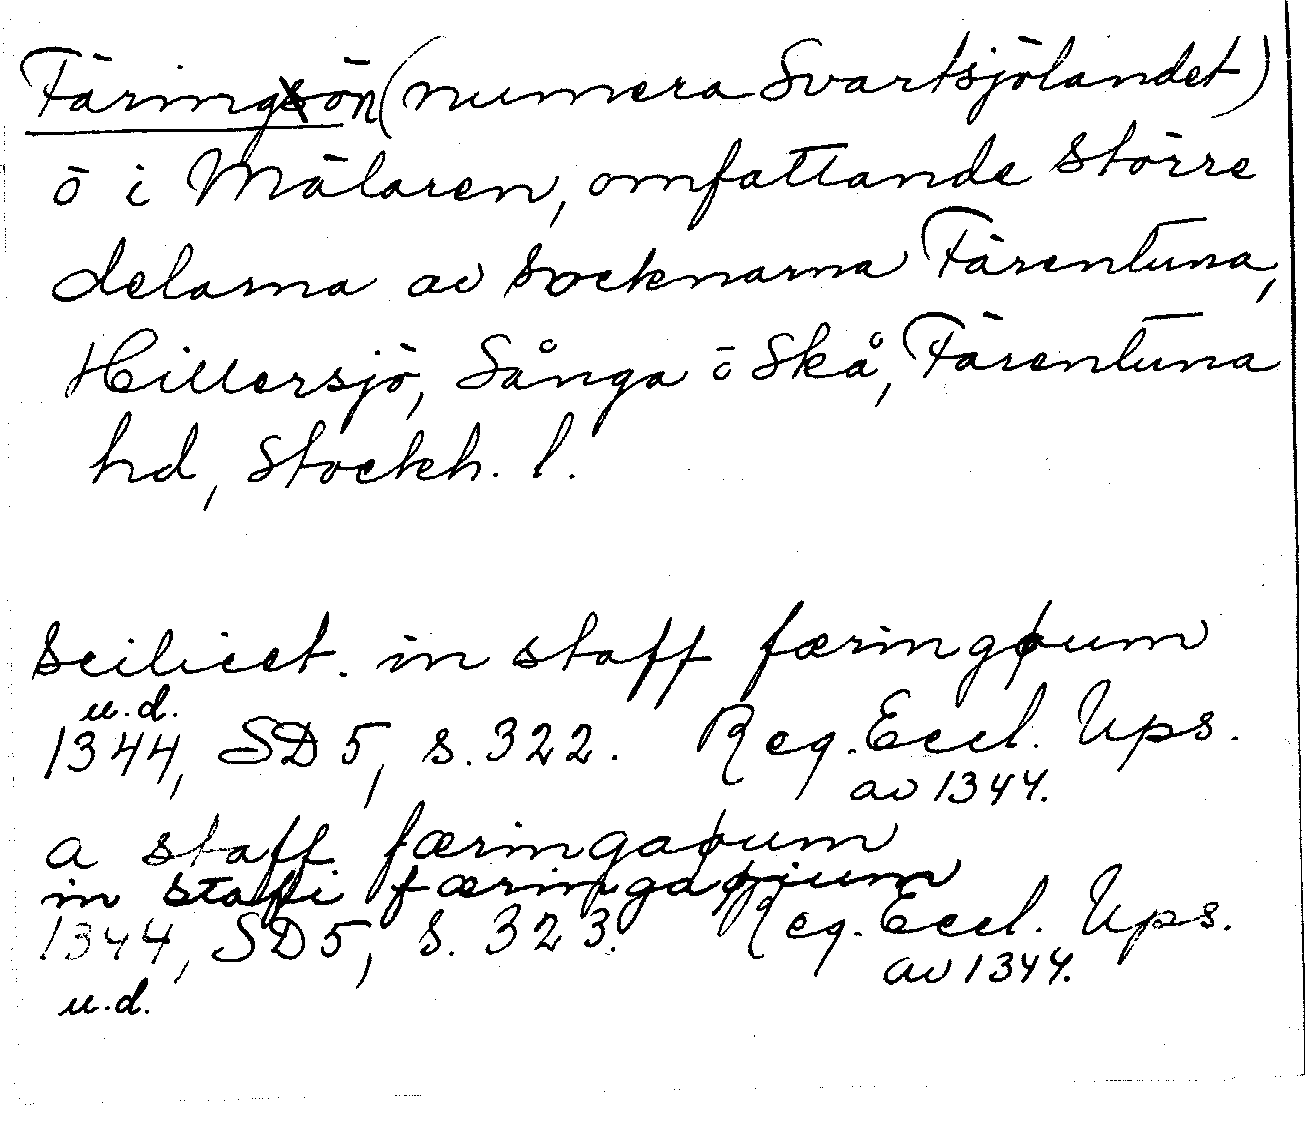 Färingön (numera Svartsjölandet)
ö i Mälaren, omfattande större
delarna av socknarna Färentuna,
Hillersjö, Sånga o Skå, Färentuna
hd, Stockh. l.
scilicet. in staff færingøum
u.d.
1344, SD 5, s. 322. Reg. Eccl. Ups.
av 1344.
a staff færingaøum
in stafi færingaøium
1344, SD 5, s. 323. Reg. Eccl. Ups.
av 1344.
u.d.